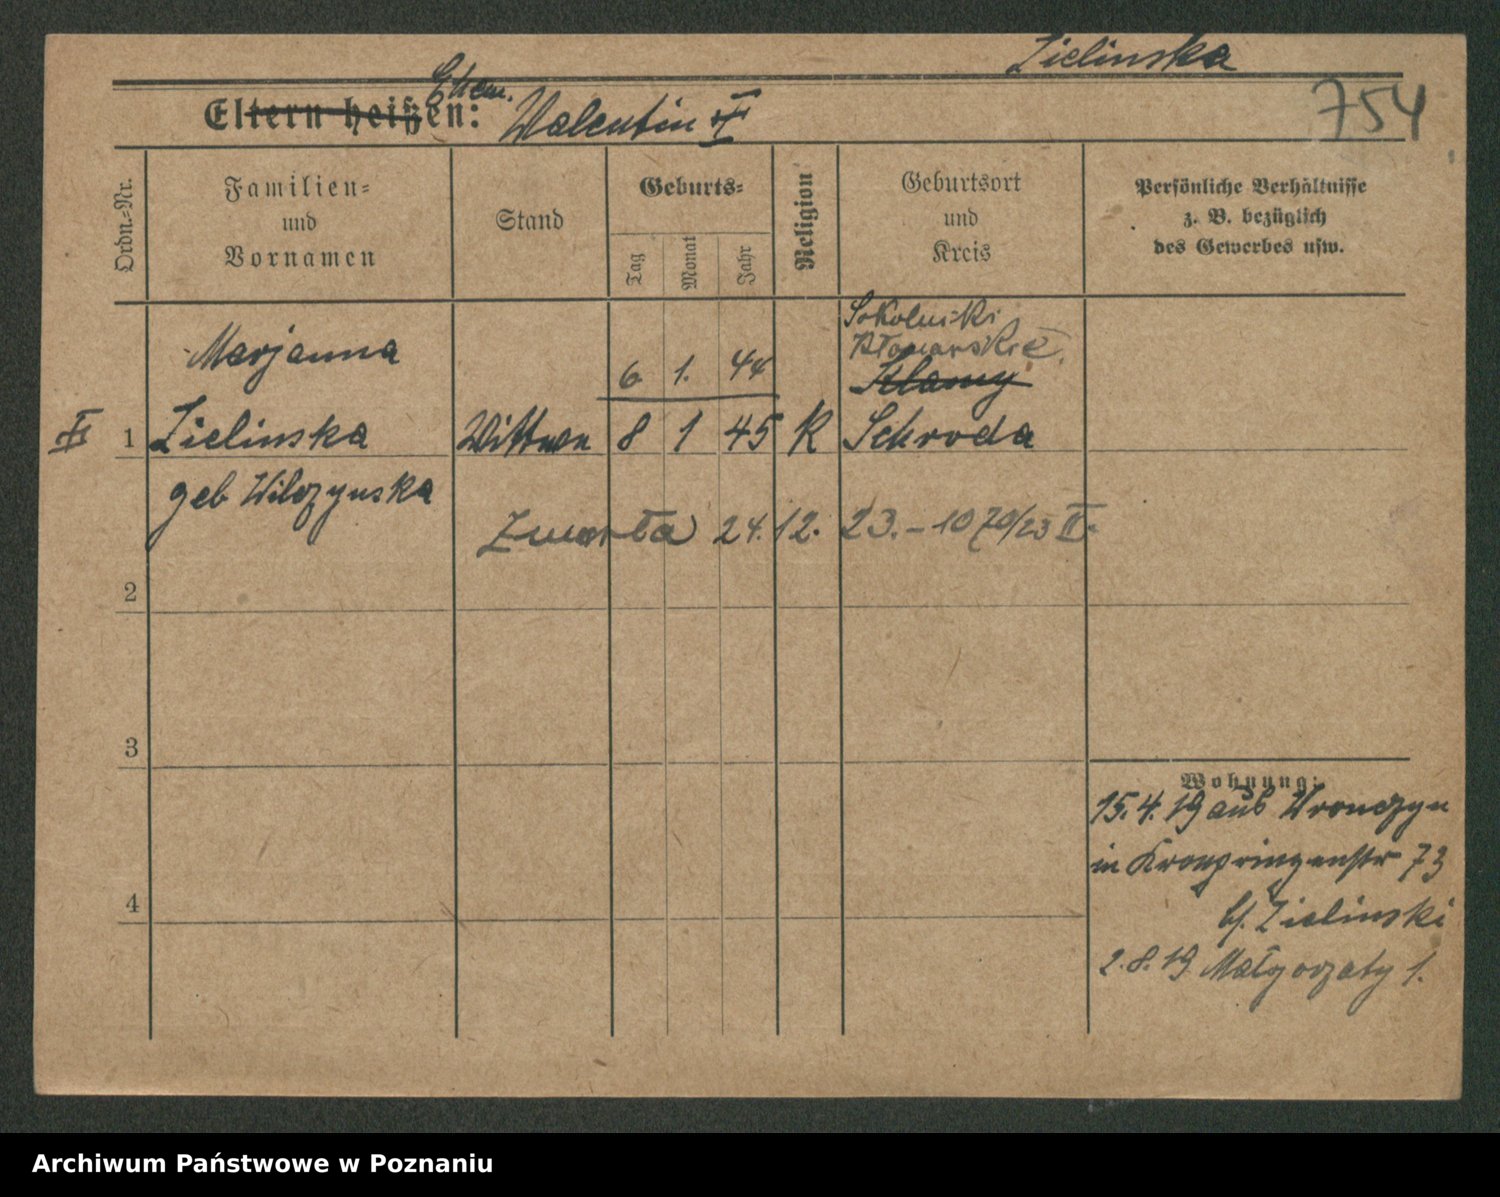 Zielinska
Eltern heißen: Ehem. Walentin
754
Ordn.-Nr.
Familien-
und
Vornamen
Stand
Geburts-
Tag
Monat
Jahr
Religion
Geburtsort
und
Kreis
Persönliche Verhältnisse
z. B. bezüglich
des Gewerbes usw.
Marjanna
6 1. 44
Sokolniki
Klamy
1 Zielinska Wittwe 8 1 45 K Schroda
geb Wilczynska
Zmarła 24.12.23.-1070/23 II.
2
3
4
Wohnung:
15.4.19 aus Wronczyn
in Kronprinzenstr 73
b/. Zielinski
2.8.19 Małgorzaty 1.
Archiwum Państwowe w Poznaniu